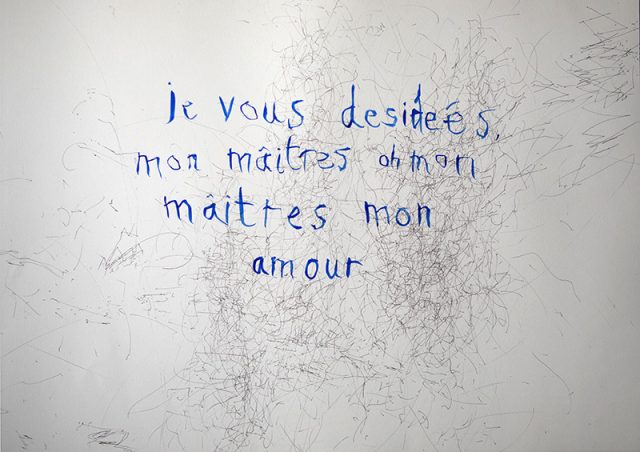 je vous desideés,
mon mâitres oh mon
mâitres mon
amour